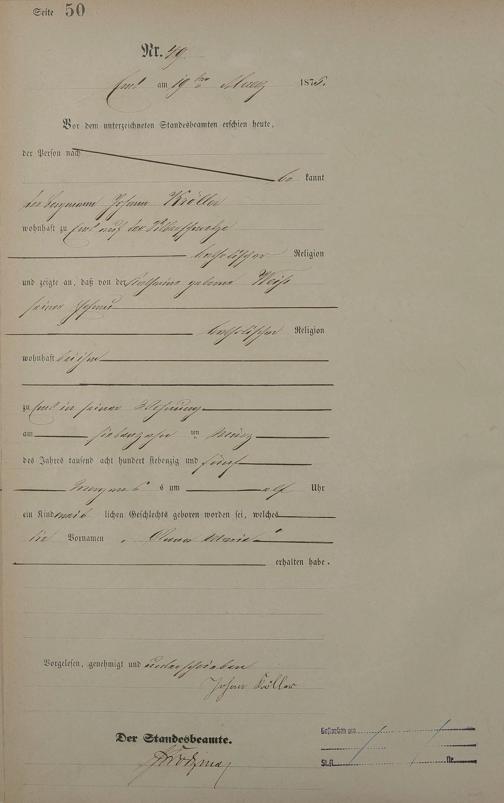 Seite 50
Nr. 49.
Ems am 19ten Maerz 1875.
Vor dem unterzeichneten Standesbeamten erschien heute,
der Person nach
be kannt
der Bergmann Johann Kröller
wohnhaft zu Ems auf der Silberschmelze
katholischer Religion
und zeigte an, daß von der Katharina geborene Weiß
seiner Ehefrau
katholischer Religion
wohnhaft bei ihm
zu Ems in seiner Wohnung
am siebenzehn ten März
des Jahres tausend acht hundert siebenzig und fünf
Morgens um elf Uhr
ein Kind weib lichen Geschlechts geboren worden sei, welches
die Vornamen Maria
erhalten habe.
Vorgelesen, genehmigt und unterschrieben
Johann Kröller
Der Standesbeamte.
Gestorben am
St.A. Nr.